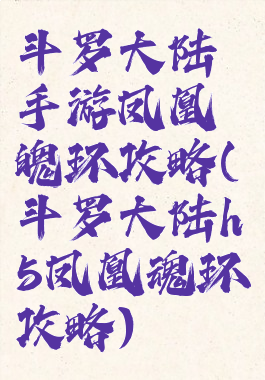 斗罗大陆
手游凤凰
魂环攻略(
斗罗大陆h
5凤凰魂环
攻略)